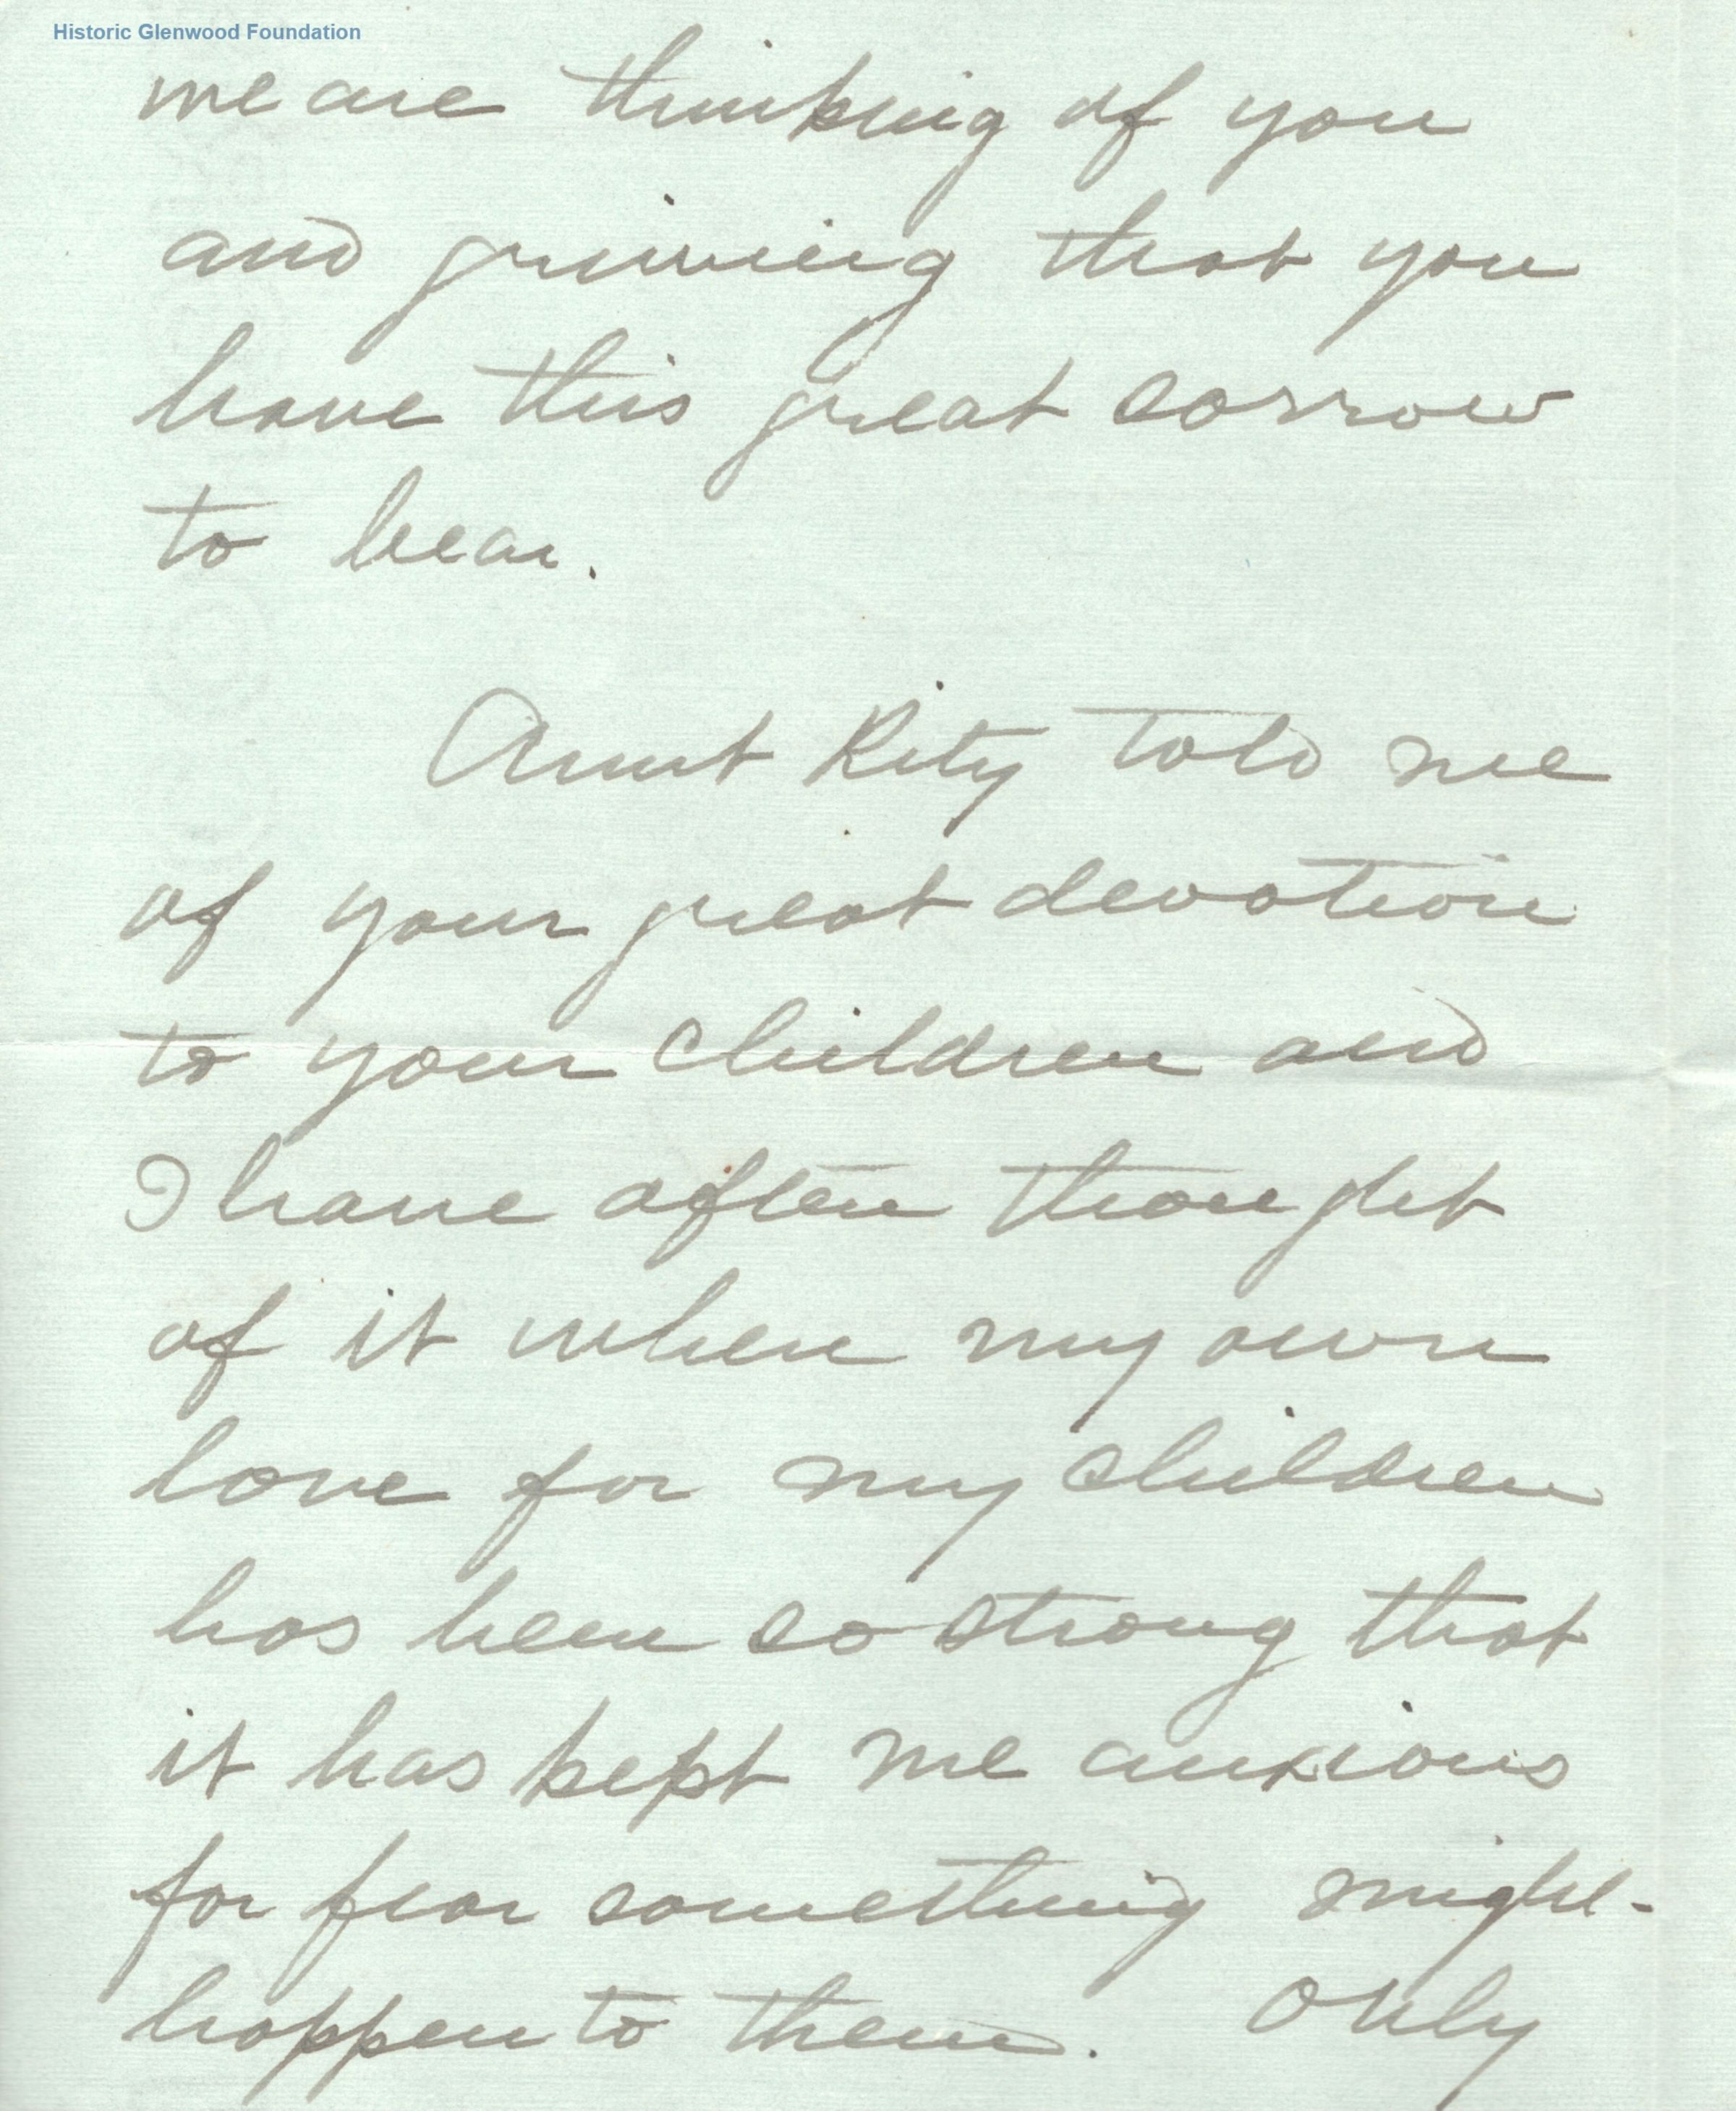 Historic Glenwood Foundation
we are thinking of you
and grieving that you
have this great sorrow
to bear.
Aunt Kity told me
of your great devotion
to your children and
I have often thought
of it when my own
love for my children
has been so strong that
it has kept me anxious
for fear something might
happen to them. Only